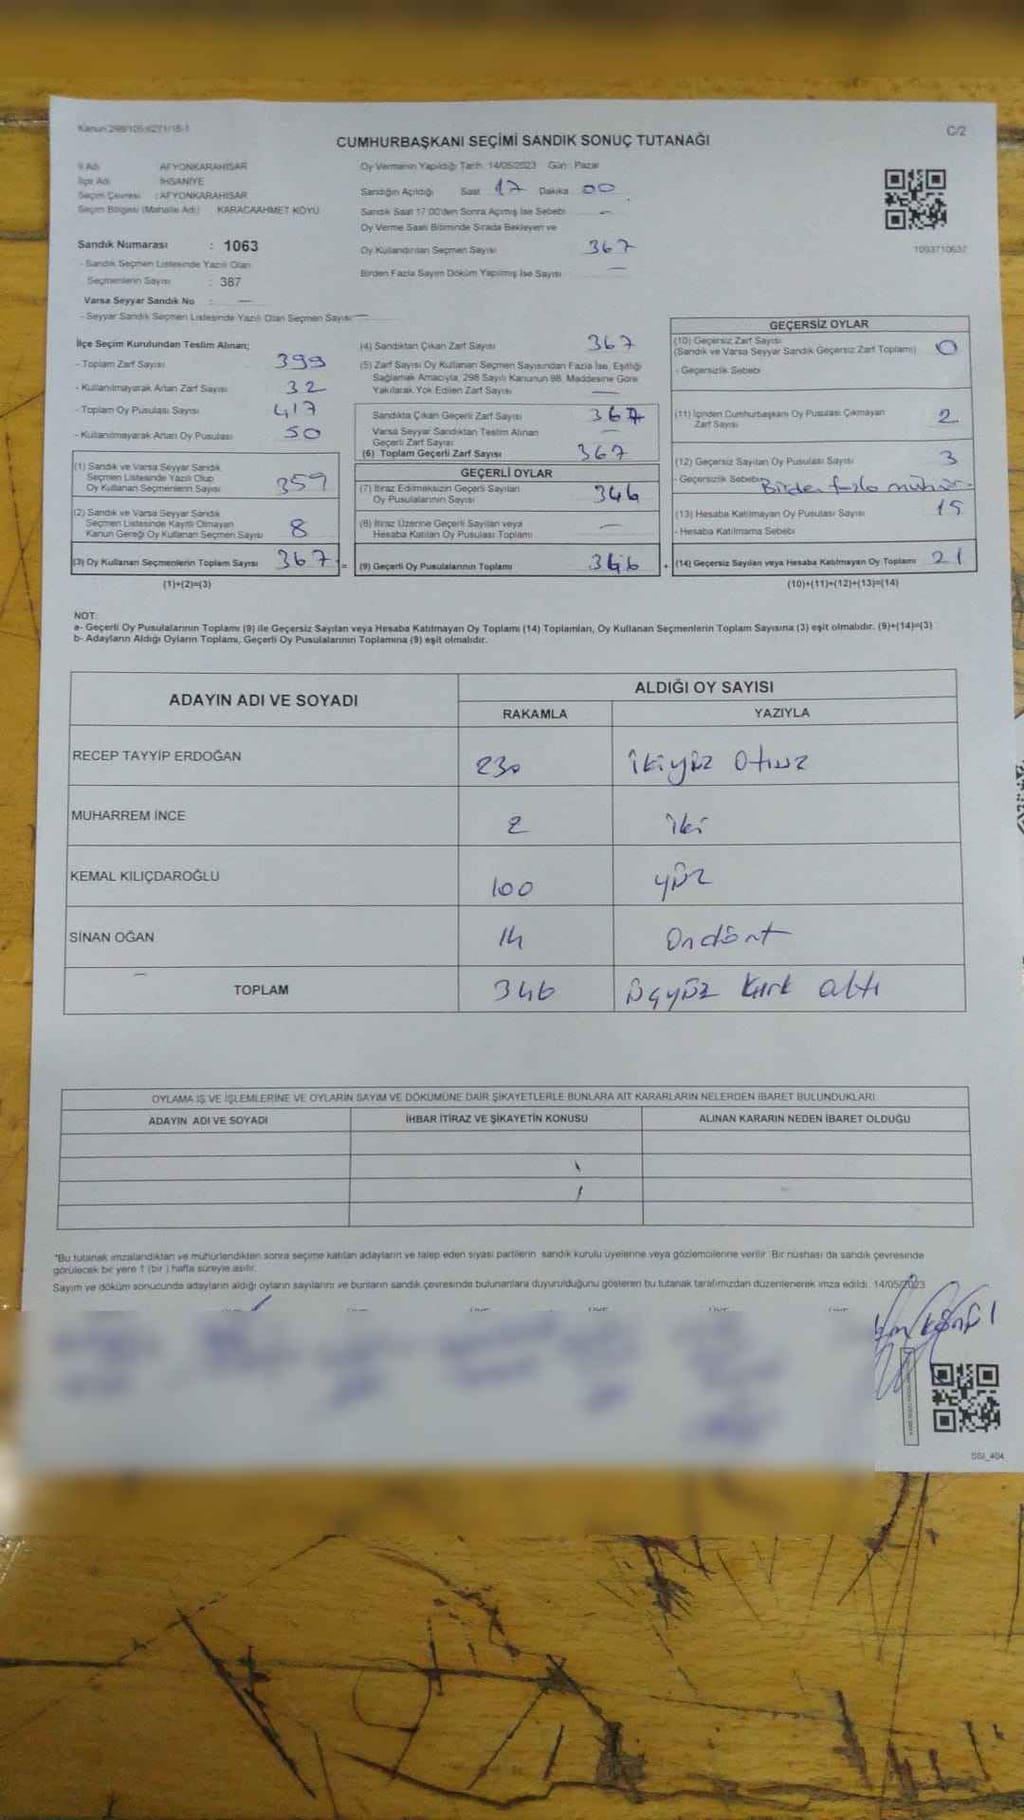 Kanun:298/105;6271/15-1
C/2
CUMHURBAŞKANI SEÇİMİ SANDIK SONUÇ TUTANAĞI
İl Adı : AFYONKARAHİSAR
İlçe Adı : İHSANİYE
Seçim Çevresi : AFYONKARAHİSAR
Seçim Bölgesi (Mahalle Adı) : KARACAAHMET KÖYÜ
Oy Vermenin Yapıldığı Tarih: 14/05/2023 Gün : Pazar
Sandığın Açıldığı Saat 17 Dakika 00
Sandık Saat 17:00'den Sonra Açılmış İse Sebebi -
Oy Verme Saati Bitiminde Sırada Bekleyen ve
Oy Kullandırılan Seçmen Sayısı 367
Birden Fazla Sayım Döküm Yapılmış İse Sayısı -
1093710637
Sandık Numarası : 1063
- Sandık Seçmen Listesinde Yazılı Olan
Seçmenlerin Sayısı : 387
Varsa Seyyar Sandık No : -
- Seyyar Sandık Seçmen Listesinde Yazılı Olan Seçmen Sayısı: -
İlçe Seçim Kurulundan Teslim Alınan;
- Toplam Zarf Sayısı 399
- Kullanılmayarak Artan Zarf Sayısı 32
- Toplam Oy Pusulası Sayısı 417
- Kullanılmayarak Artan Oy Pusulası 50
(1) Sandık ve Varsa Seyyar Sandık
Seçmen Listesinde Yazılı Olup
Oy Kullanan Seçmenlerin Sayısı 359
(2) Sandık ve Varsa Seyyar Sandık
Seçmen Listesinde Kayıtlı Olmayan
Kanun Gereği Oy Kullanan Seçmen Sayısı 8
(3) Oy Kullanan Seçmenlerin Toplam Sayısı 367 =
(1)+(2)=(3)
(4) Sandıktan Çıkan Zarf Sayısı 367
(5) Zarf Sayısı Oy Kullanan Seçmen Sayısından Fazla İse, Eşitliği
Sağlamak Amacıyla, 298 Sayılı Kanunun 98. Maddesine Göre
Yakılarak Yok Edilen Zarf Sayısı -
Sandıkta Çıkan Geçerli Zarf Sayısı 367
Varsa Seyyar Sandıktan Teslim Alınan
Geçerli Zarf Sayısı -
(6) Toplam Geçerli Zarf Sayısı 367
GEÇERLİ OYLAR
(7) İtiraz Edilmeksizin Geçerli Sayılan
Oy Pusulalarının Sayısı 346
(8) İtiraz Üzerine Geçerli Sayılan veya
Hesaba Katılan Oy Pusulası Toplamı -
(9) Geçerli Oy Pusulalarının Toplamı 346 +
GEÇERSİZ OYLAR
(10) Geçersiz Zarf Sayısı
(Sandık ve Varsa Seyyar Sandık Geçersiz Zarf Toplamı) 0
- Geçersizlik Sebebi
(11) İçinden Cumhurbaşkanı Oy Pusulası Çıkmayan
Zarf Sayısı 2
(12) Geçersiz Sayılan Oy Pusulası Sayısı 3
- Geçersizlik Sebebi Birden fazla mühür.
(13) Hesaba Katılmayan Oy Pusulası Sayısı
- Hesaba Katılmama Sebebi
(14) Geçersiz Sayılan veya Hesaba Katılmayan Oy Toplamı 21
(10)+(11)+(12)+(13)=(14)
NOT:
a- Geçerli Oy Pusulalarının Toplamı (9) ile Geçersiz Sayılan veya Hesaba Katılmayan Oy Toplamı (14) Toplamları, Oy Kullanan Seçmenlerin Toplam Sayısına (3) eşit olmalıdır. (9)+(14)=(3)
b- Adayların Aldığı Oyların Toplamı, Geçerli Oy Pusulalarının Toplamına (9) eşit olmalıdır.
ADAYIN ADI VE SOYADI ALDIĞI OY SAYISI
RAKAMLA YAZIYLA
RECEP TAYYİP ERDOĞAN 230 ikiyüz otuz
MUHARREM İNCE 2 iki
KEMAL KILIÇDAROĞLU 100 yüz
SİNAN OĞAN 14 Ondört
TOPLAM 346 üçyüz kırk altı
OYLAMA İŞ VE İŞLEMLERİNE VE OYLARIN SAYIM VE DÖKÜMÜNE DAİR ŞİKAYETLERLE BUNLARA AİT KARARLARIN NELERDEN İBARET BULUNDUKLARI
ADAYIN ADI VE SOYADI İHBAR İTİRAZ VE ŞİKAYETİN KONUSU ALINAN KARARIN NEDEN İBARET OLDUĞU
*Bu tutanak imzalandıktan ve mühürlendikten sonra seçime katılan adayların ve talep eden siyasi partilerin sandık kurulu üyelerine veya gözlemcilerine verilir. Bir nüshası da sandık çevresinde
görülecek bir yere 1 (bir ) hafta süreyle asılır.
Sayım ve döküm sonucunda adayların aldığı oyların sayılarını ve bunların sandık çevresinde bulunanlara duyurulduğunu gösteren bu tutanak tarafımızdan düzenlenerek imza edildi. 14/05/2023
SSI_404